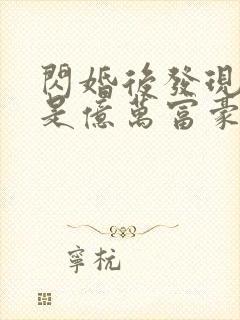 閃婚後發現
是億萬富豪
寧杬